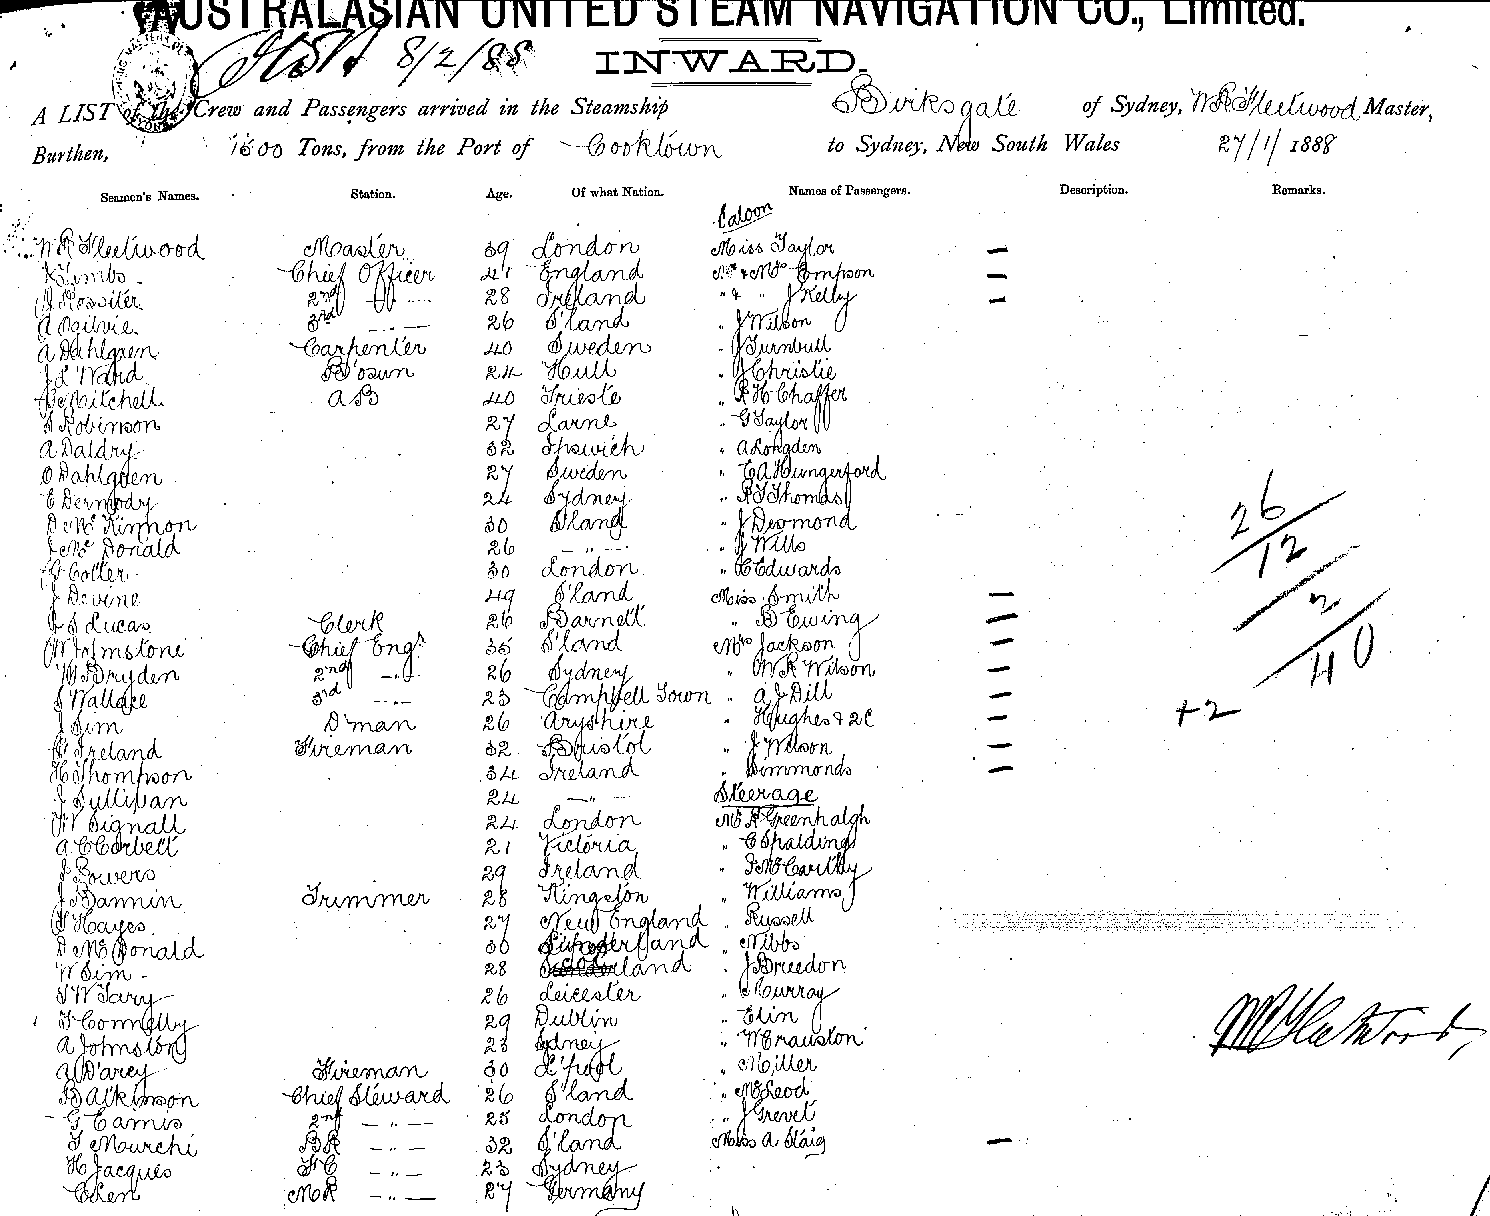 AUSTRALASIAN UNITED STEAM NAVIGATION CO., Limited.
8/2/88
INWARD.
A LIST of the Crew and Passengers arrived in the Steamship Birksgate of Sydney, W R Fleetwood Master,
Burthen, 1500 Tons, from the Port of Cooktown to Sydney, New South Wales 27/1/1888
Seamen's Names. Station. Age. Of what Nation. Names of Passengers. Description. Remarks.
Saloon
W R Fleetwood Master 39 London Miss Taylor —
Timbs Chief Officer 41 England Mr & Mrs Empson —
J Rossiter 2nd " 28 Ireland " & " J Kelly —
A Ogilvie 3rd " 26 S'land " J Wilson
A Dahlgren Carpenter 40 Sweden " J Turnbull
J L Ward B'osun 24 Hull " J Christie
Mitchell A B 40 Trieste " R H Chaffer
Robinson 27 Larne " G Taylor
A Daldry 32 Ipswich " A Longden
O Dahlgren 27 Sweden " E A Hungerford
E Dermody 24 Sydney " R T Thomas
D McKinnon 30 S'land " J Desmond
J McDonald 26 " " J Wills
J Coller 30 London " C Edwards
J Devine 49 S'land Miss Smith —
J S Lucas Clerk 26 Barnett " B Ewing —
W Johnstone Chief Engr 35 S'land Mrs Jackson —
W Bryden 2nd " 26 Sydney " W R Wilson —
S Wallace 3rd " 23 Campbell Town " A J Dill —
J Sim D'man 26 Aryshire " Hughes & 2C —
Ireland Fireman 32 Bristol " J Wilson —
H Thompson 34 Ireland " Simmonds —
J Sullivan 24 " Steerage
W Signall 24 London Mr R Greenhalgh
A C Corbett 21 Victoria " C Spalding
J Bowers 29 Ireland " J McCarthy
J Bannin Trimmer 28 Kingston " Williams
Hayes 27 New England " Russell
D McDonald 30 Sunderland " Nibbs
W Sim 28 land " J Breedon
S W Tary 26 Leicester " Murray
T Connelly 29 Dublin " Elin
A Johnston 23 Sydney " W Crauston
A D'arcy Fireman 30 L'pool " Miller
B Atkinson Chief Steward 26 S'land " McLeod
G Camis 2nd " 25 London " J Grevet
T Murchi BR " 32 S'land Miss A Haig —
H Jacques FC " 23 Sydney
Clen MR " 27 Germany
26
12
2
40
+2